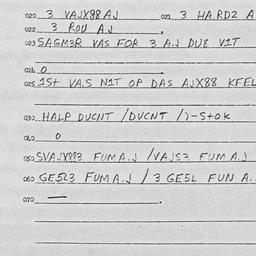 020 3 VAJX88 AJ 021 3 HA.RD2 A
022 3 ROU AJ.
023 SAGM3R VAS FOR 3 A.J DU8 V1T
024 0
025 1St VA.S N1T OP DAS AJX88 KFEL
030 HALP DUCNT /DUCNT /)-StOK
040 0
050 SVAJX883 FUMA.J /VAJS3 FUM A.J
060 GE5L3 FUMA.J / 3 GE5L FUN A.
070 —.